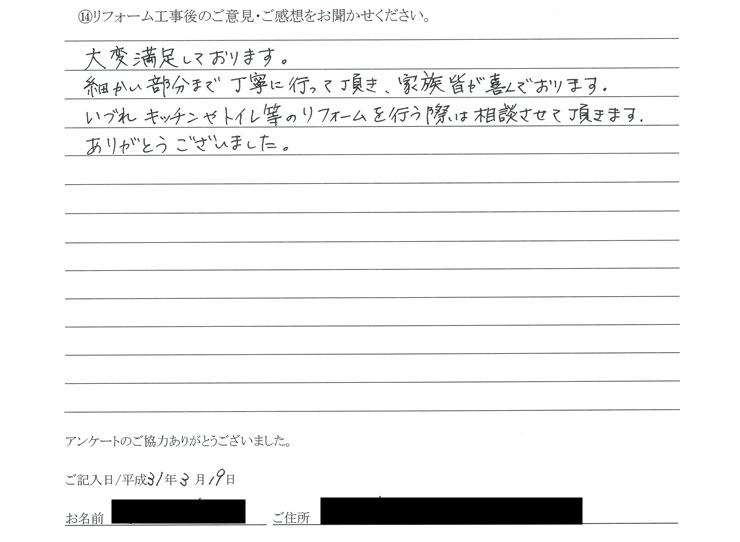 ⑭リフォーム工事後のご意見・ご感想をお聞かせください。
大変満足しております。
細かい部分まで丁寧に行って頂き、家族皆が喜んでおります。
いづれキッチンやトイレ等のリフォームを行う際は相談させて頂きます.
ありがとうございました。
アンケートのご協力ありがとうございました。
ご記入日/平成31年3月19日
お名前 ご住所